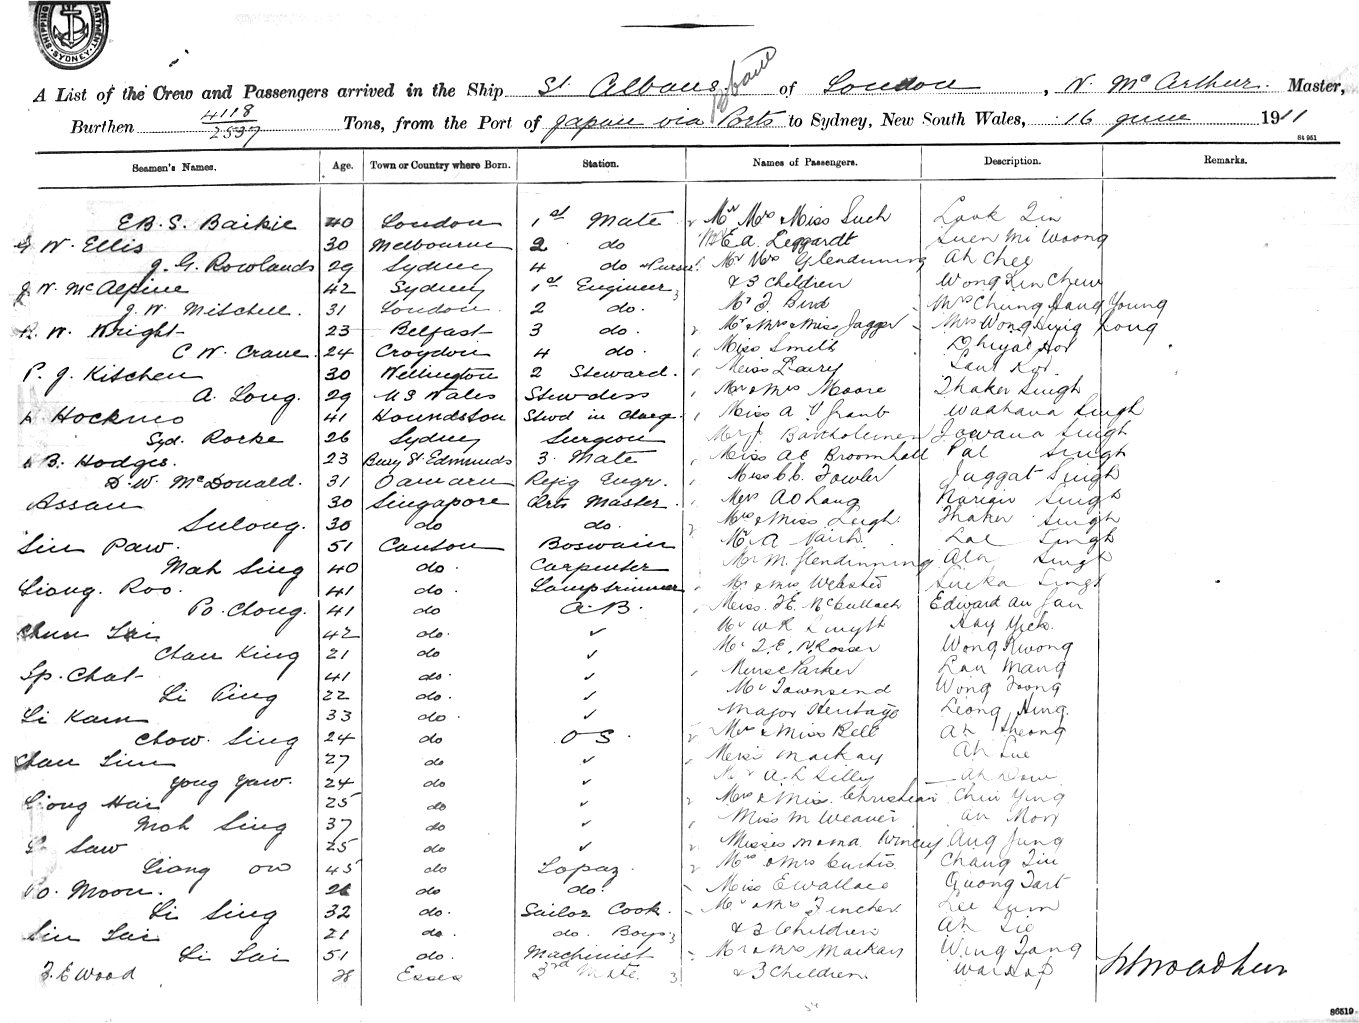 SHIPPING DEPARTMENT. SYDNEY
A List of the Crew and Passengers arrived in the Ship St Albans of London, N. McArthur Master,
Burthen 4118 2537 Tons, from the Port of Japan via Ports to Sydney, New South Wales, 16 June 1911
St 951
Seamen's Names. Age. Town or Country where Born. Station. Names of Passengers. Description. Remarks.
E.B.S. Baikie 40 London 1st Mate Mr Mrs Miss Such Look Tin
W. Ellis 30 Melbourne 2 do E a. Leggardt Suen Mi Woong
J. G. Rowlands 29 Sydney 4 do Nurse Mr Mrs Glendinning Ah Chee
J W. McAlpine 42 Sydney 1st Engineer 3 & 3 Children Wong Kin Chew
J. W. Mitchell. 31 London 2 do. Mr F. Bird Mrs Chung Hang Young
R. W. Wright 23 Belfast 3 do. Mr Mrs & Miss Jagger Mrs Wong Long
C W. Crane. 24 Croydon 4 do. Miss Smith
P. J. Kitchen 30 Wellington 2 Steward. Miss
A. Long. 29 N S Wales Stewdess Mr & Mrs Moore Thaker Singh
Hockmo 41 Houndston Stwd in charg. Miss A Grant Wadhava Singh
Syd. Rorke 26 Sydney Surgeon Bartholemew Jowana Singh
B. Hodges. 23 Bury St Edmunds 3. Mate Miss A E Broomhall Pal Singh
D. W. McDonald. 31 Oamaru Refrig Engr. Miss C.C. Fowler Juggat Singh
Assan 30 Singapore Qrts Master Singh
Sulong. 30 do do. Mrs & Miss Leigh Thaker Singh
Sin Paw. 51 Canton Boswain Mr A Lal Singh
Mah Sing 40 do. Carpenter Mr M. Glendinning Ah Singh
Liong. Roo. 41 do. Lamptrimmer Mr & Mrs Webster Sucka Singh
Po. Chong. 41 do A. B. Miss. F. E. McCullach Edward au Jan
Chun Lai 42 do. ✓ Mr W R Smyth Hay Yick
Chan King 21 do. ✓ Mr F. E. N. Rosser Wong Kwong
Sp. Chat 41 do. ✓ Nurse Parker Lau Mang
Li Ping 22 do. ✓ Mr Townsend Wong Foong
Li Kam 33 do. ✓ Major Heritage Leong Hing.
Chow. Sing 24 do O S. & Miss Bell Ah Sheong
Chan Sim 27 do ✓ Miss Mackay Ah Lue
Yong Yaw. 24 do ✓ Mr A. L Silly Ah Dow
Liong Hai 25 do ✓ Mrs & Miss. Christian Chin Ying
Moh Sing 37 do ✓ Miss M Weaver Mon
Saw 25 do ✓ Misses Aug Jung
Liong ow 45 do Topaz. & Mrs Curtis Chang Tin
Po. Moon. 26 do do. Miss E Wallace Quong Tart
Li Sing 32 do. Sailor Cook. Mr & Mrs Fincher Lee Sum
Sin Lai 21 do. do. Boys & 3 Children Ah Sie
Li Lai 51 do. Machinist Mr & Mrs Mackay Wing Tang
F. E Wood 28 Essex 3rd Mate. 3 & 3 Children
86519